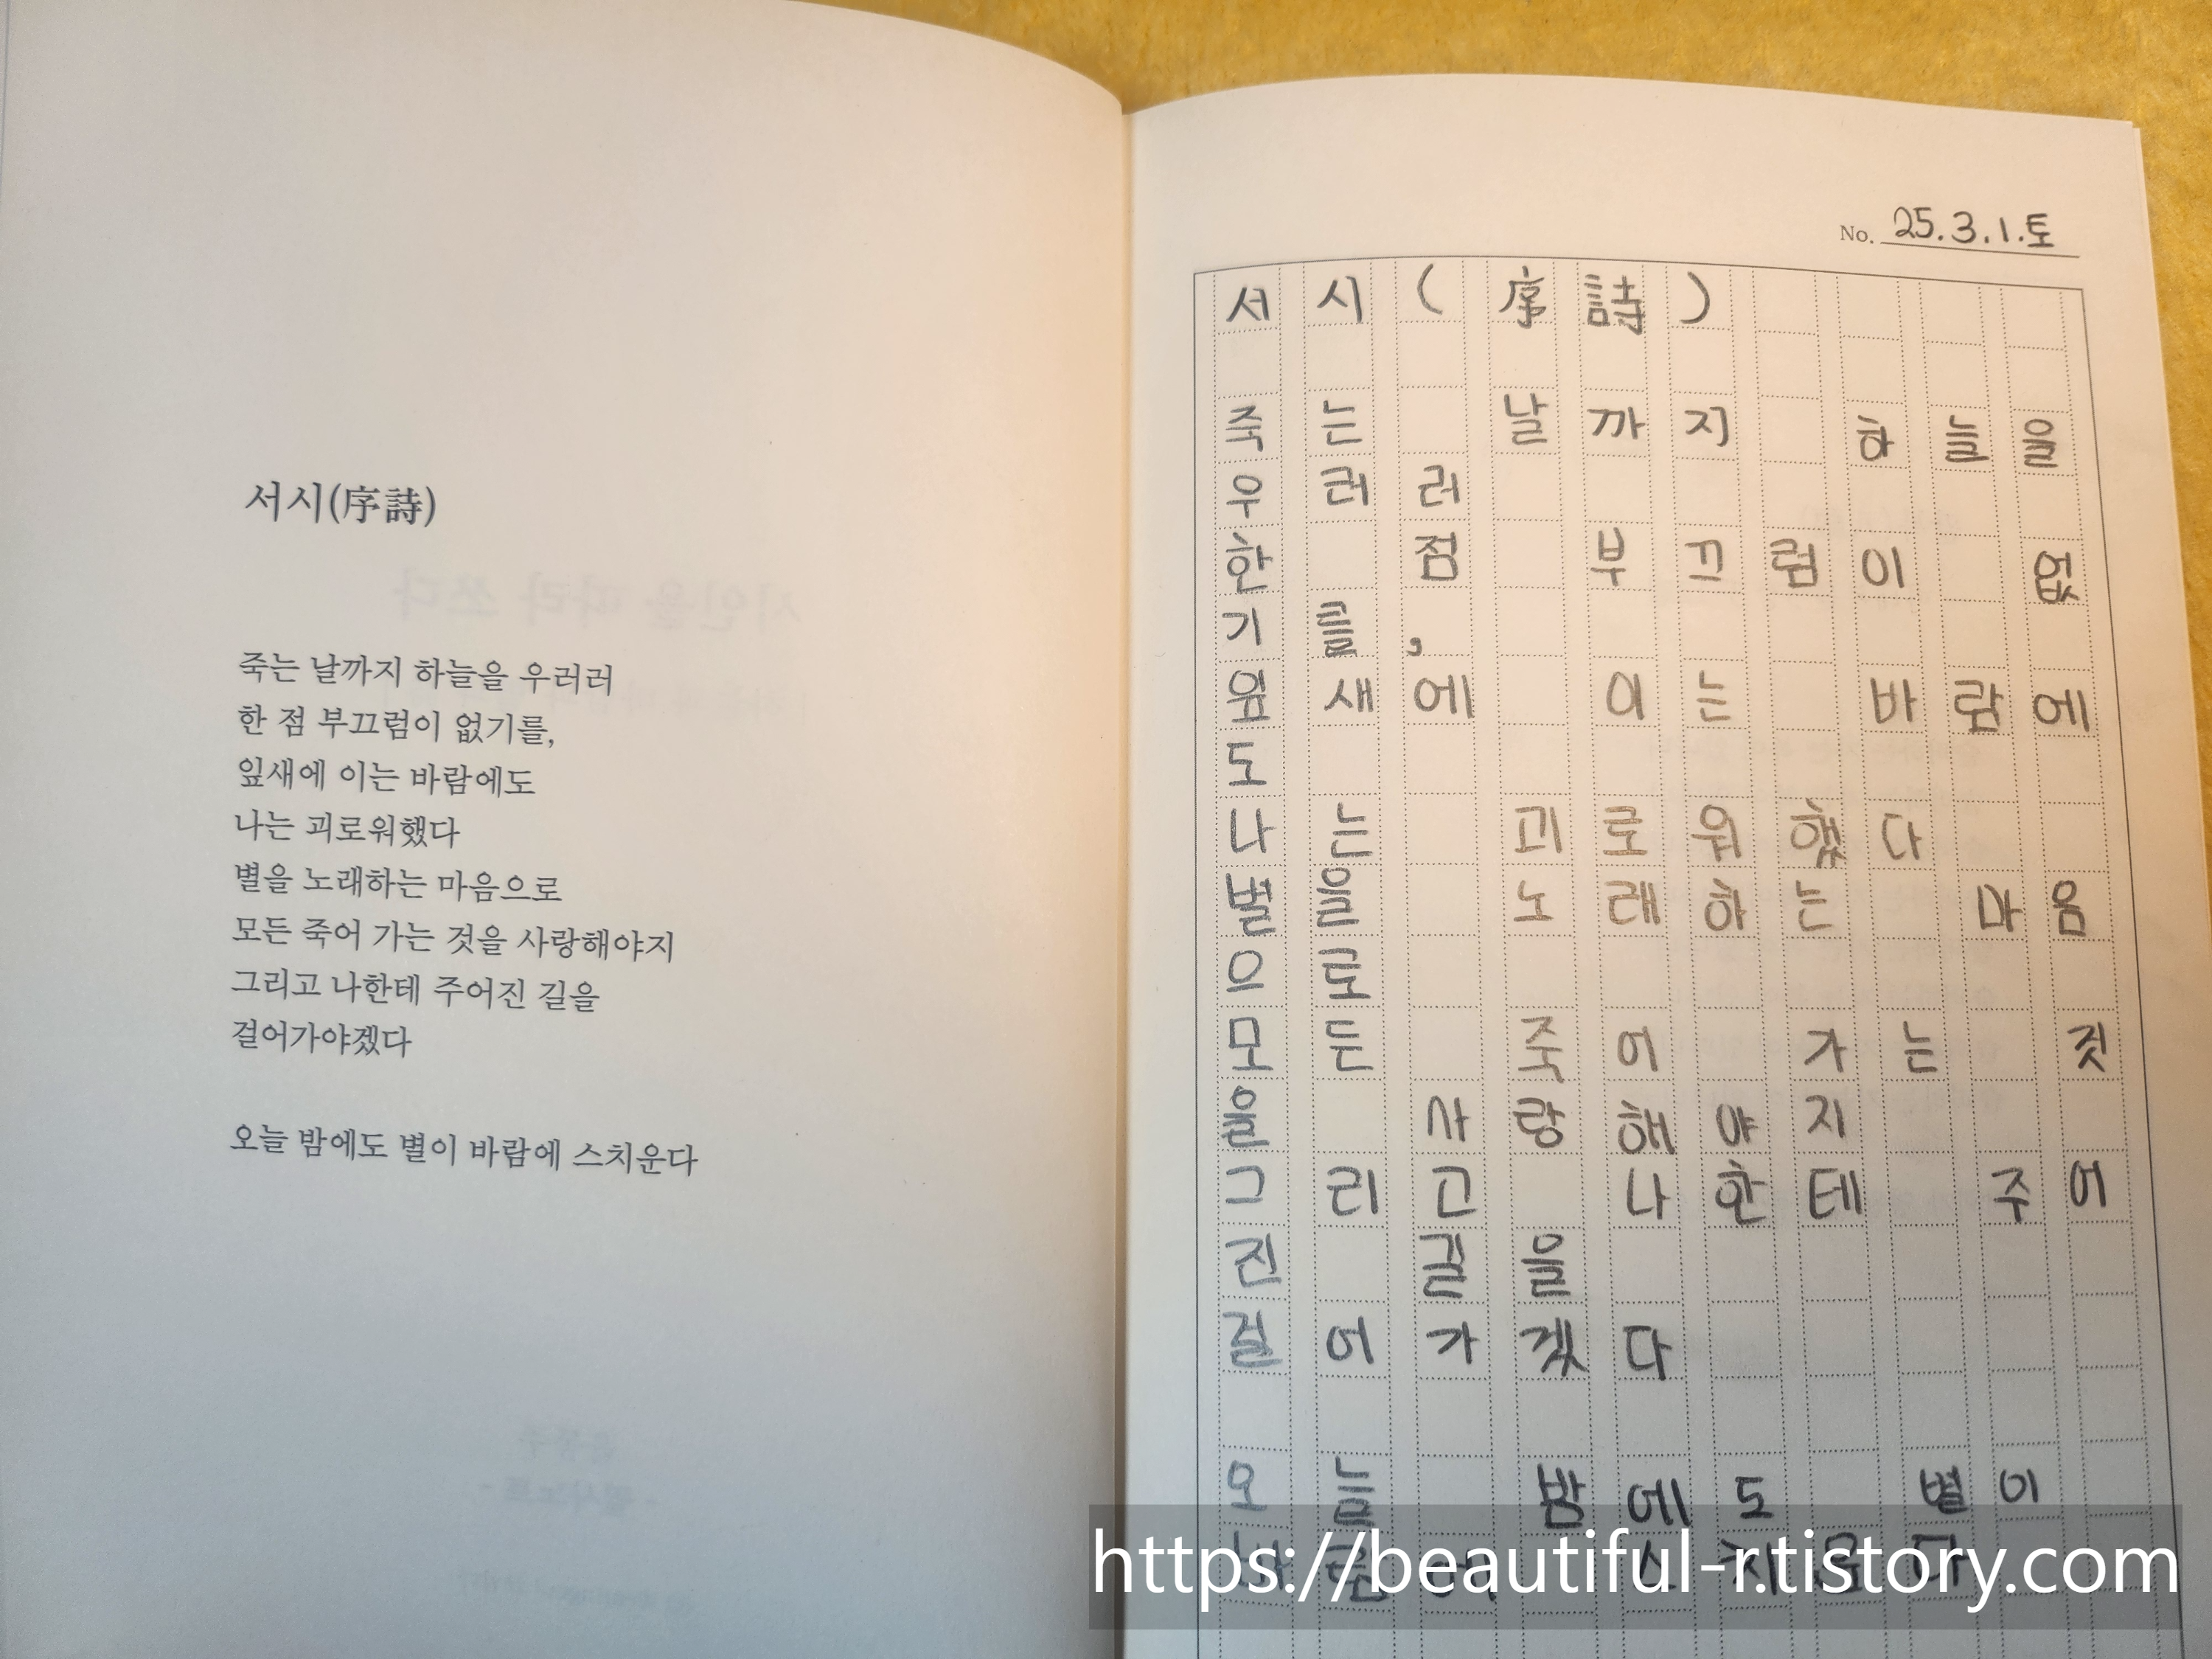 서시(序詩)
죽는 날까지 하늘을 우러러
한 점 부끄럼이 없기를,
잎새에 이는 바람에도
나는 괴로워했다
별을 노래하는 마음으로
모든 죽어 가는 것을 사랑해야지
그리고 나한테 주어진 길을
걸어가야겠다
오늘 밤에도 별이 바람에 스치운다
No. 25.3.1.토
서시(序詩)
죽는 날까지 하늘을
우러러
한 점 부끄럼이 없
기를,
잎새에 이는 바람에
도
나는 괴로워했다
별을 노래하는 마음
으로
모든 죽어 가는 것
을 사랑해야지
그리고 나한테 주어
진 길을
걸어가겠다
오늘 밤에도 별이
https://beautiful-r.tistory.com